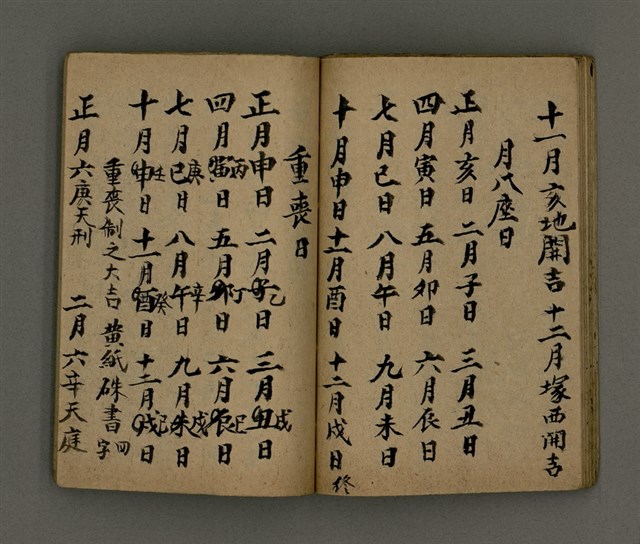 十一月亥地開吉 十二月塚西開吉
月八座日
正月亥日 二月子日 三月丑日
四月寅日 五月卯日 六月辰日
七月巳日 八月午日 九月未日
十月申日 十一月酉日 十二月戌日 終
重喪日
正月申日 二月子乙日 三月丑戌日
四月寅丙日 五月卯丁日 六月辰巳日
七月巳庚日 八月午辛日 九月未戌日
十月申壬日 十一月酉癸日 十二月戌巳日
重喪制之大吉 黄紙硃書四字
正月六庚天刑 二月六辛天庭